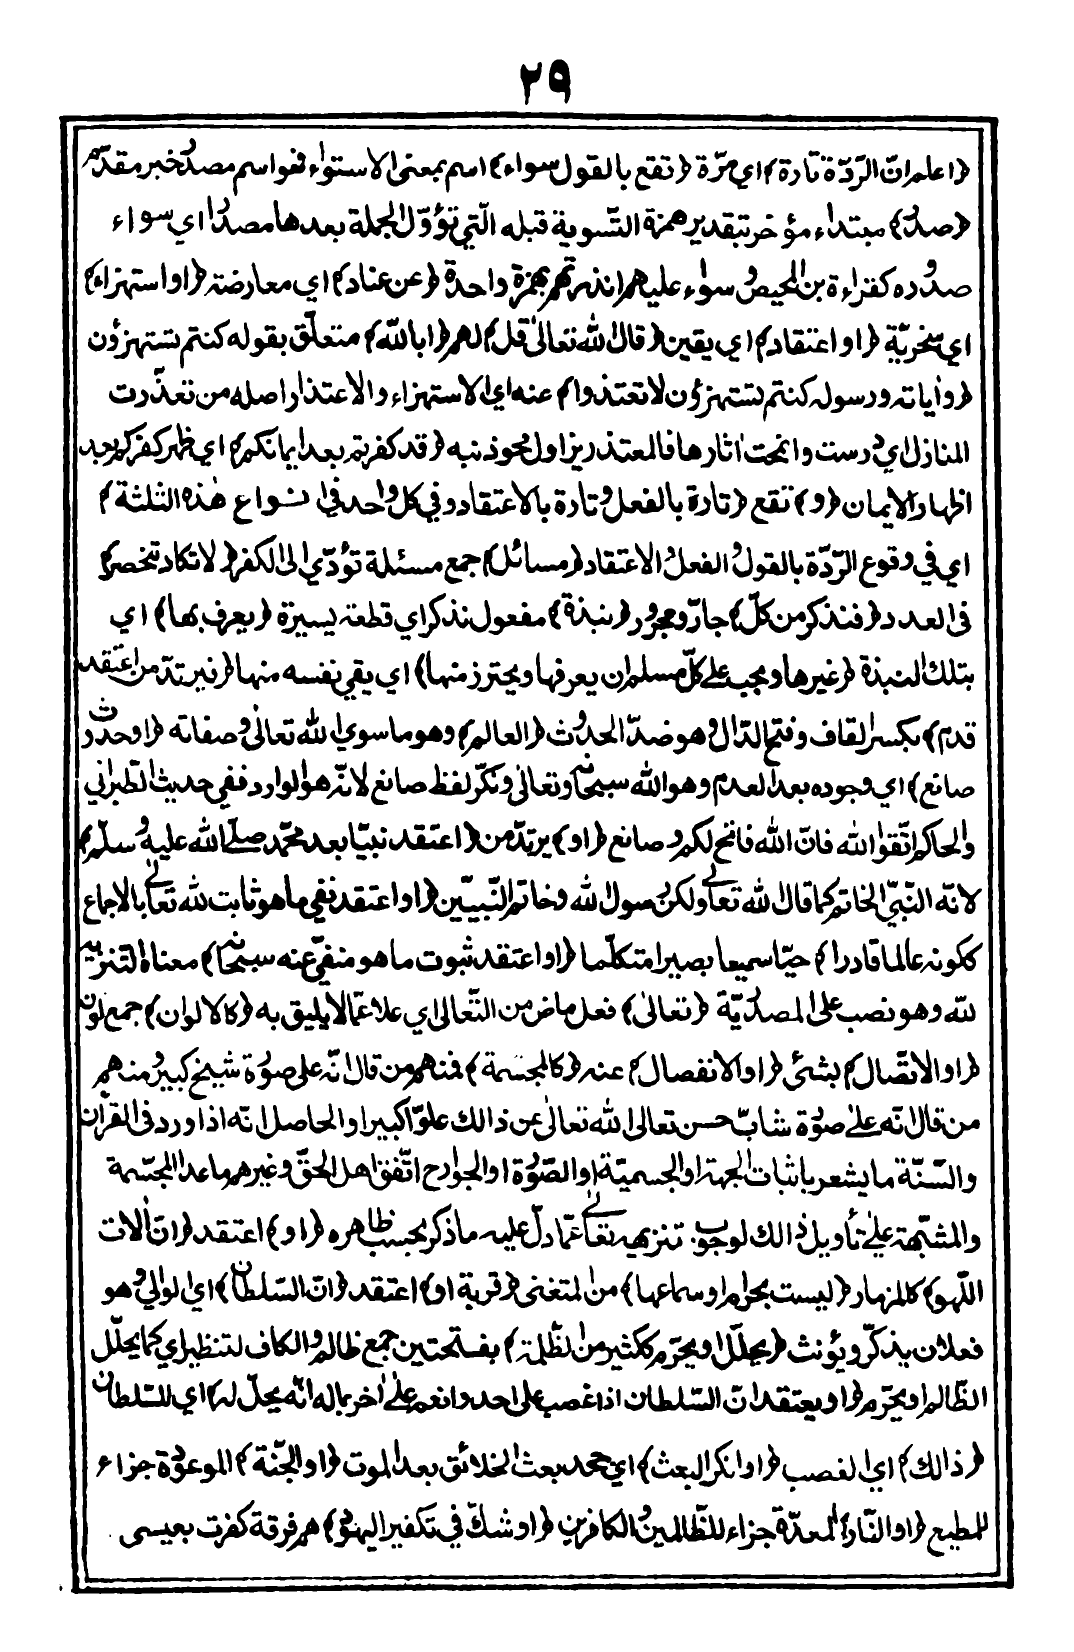 ٢٩
﴿اعلم ان الرّدّة تارة﴾ اي مرّة ﴿تقع بالقول سواء﴾ اسم بمعنى الاستواء فهو اسم مصدر خبر مقدّم
﴿صدر﴾ مبتداء مؤخر بتقدير همزة التّسوية قبله الّتي تؤوّل الجملة بعدها مصدرا اي سواء
صدوره كقراءة بن المحيص سواء عليهم انذرتهم بهمزة واحدة ﴿عن عناد﴾ اي معارضة ﴿او استهزاء﴾
اي سخريّة ﴿او اعتقاد﴾ اي يقين ﴿قال الله تعالى قل﴾ لهم ﴿ابالله﴾ متعلّق بقوله كنتم تستهزؤن
﴿واٰياته ورسوله كنتم تستهزؤن لا تعتذروا﴾ عنه اي الاستهزاء والاعتذار اصله من تعذّرت
المنازل اي درست وانمحت اٰثارها فالمعتذر يزاول محو ذنبه ﴿قد كفرتم بعد ايمانكم﴾ اي ظهر كفركم بعد
اظهار الايمان ﴿و﴾ تقع ﴿تارة بالفعل وتارة بالاعتقاد وفي كل واحد في انواع هٰذه الثلثة﴾
اي في وقوع الرّدّة بالقول والفعل والاعتقاد ﴿مسائل﴾ جمع مسئلة تؤدّي الى الكفر ﴿لا تكاد تنحصر﴾
في العدد ﴿فنذكر من كلّ﴾ جارّ ومجرور ﴿نبذة﴾ مفعول نذكر اي قطعة يسيرة ﴿يعرف بها﴾ اي
بتلك النبذة ﴿غيرها ويجب على كلّ مسلم ان يعرفها ويحترز منها﴾ اي يقي نفسه منها ﴿فيرتدّ من اعتقد
قدم﴾ بكسر القاف وفتح الدّال وهو ضدّ الحدوث ﴿العالم﴾ وهو ما سوي الله تعالى وصفاته ﴿او حدوث
صانع﴾ اي وجوده بعد العدم وهو الله سبحانه وتعالى ونكّر لفظ صانع لانّه هو الوارد ففي حديث الطّبراني
والحاكم اتّقوا الله فانّ الله فاتح لكم وصانع ﴿او﴾ يرتدّ من ﴿اعتقد نبيّا بعد محمّد صلّى الله عليه وسلّم﴾
لانّه النّبيّ الخاتم كما قال الله تعالى ولكن رسول الله وخاتم النّبيّين ﴿او اعتقد نفي ما هو ثابت لله تعالى بالاجماع
ككونه عالما قادرا﴾ حيّا سميعا بصيرا متكلّما ﴿او اعتقد ثبوت ما هو منفيّ عنه سبحانه﴾ معناه التّنزيه
لله وهو نصب على المصدريّة ﴿تعالى﴾ فعل ماض من التّعالى اي علا عمّا لا يليق به ﴿كالالوان﴾ جمع لون
﴿او الاتّصال﴾ بشئ ﴿او الانفصال﴾ عنه ﴿كالمجسّمة﴾ فمنهم من قال انّه على صورة شيخ كبير ومنهم
من قال انّه على صورة شابّ حسن تعالى الله تعالى عن ذالك علوّا كبيرا والحاصل انّه اذا ورد في القراٰن
والسّنّة ما يشعر باثبات الجهة او الجسميّة او الصّورة او الجوارح اتّفق اهل الحقّ وغيرهم ما عدا المجسّمة
والمشبّهة على تأويل ذالك لوجوب تنزيهه تعالى عمّا دلّ عليه ما ذكر بحسب ظاهره ﴿او﴾ اعتقد ﴿انّ اٰلات
اللّهو﴾ كالمزمار ﴿ليست بحرام او سماعها﴾ من المتغنى ﴿قربة او﴾ اعتقد ﴿انّ السّلطان﴾ اي الوالي وهو
فعلان يذكّر ويؤنث ﴿يحلّل او يحرّم ككثير من الظّلمة﴾ بفتحتين جمع ظالم والكاف لتنظير اي كما يحلّل
الظّالم او يحرّم ﴿او يعتقد انّ السّلطان اذا غصب على احد وانعم على اٰخر بماله انّه يحلّ له﴾ اي للسّلطان
﴿ذالك﴾ اي الغصب ﴿او انكر البعث﴾ اي جحد بعث الخلائق بعد الموت ﴿او الجنّة﴾ الموعودة جزاء
للمطيع ﴿او النّار﴾ المعدّة جزاء للظّالمين والكافرين ﴿او شكّ في تكفير اليهود﴾ هم فرقة كفرت بعيسى